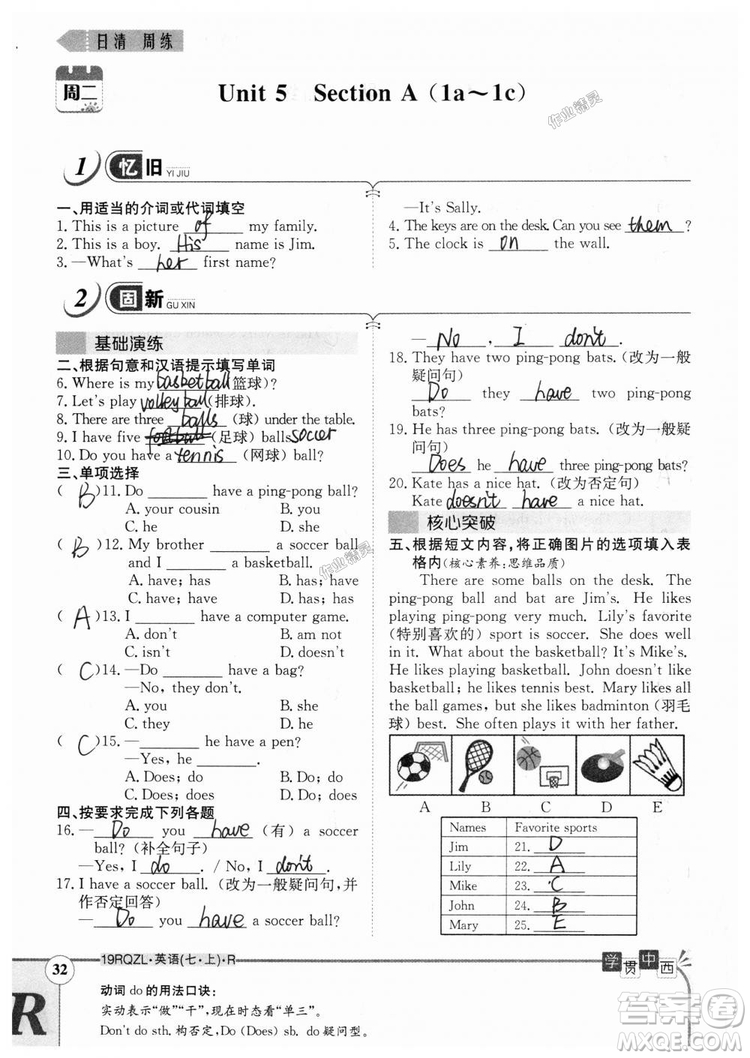 日清 周练
周二
Unit 5 Section A（1a～1c）
作业精灵
1 忆旧 YI JIU
一、用适当的介词或代词填空
1. This is a picture of my family.
2. This is a boy. His name is Jim.
3. —What's her first name?
—It's Sally.
4. The keys are on the desk. Can you see them?
5. The clock is on the wall.
2 固新 GU XIN
基础演练
二、根据句意和汉语提示填写单词
6. Where is my basketball(篮球)?
7. Let's play volleyball(排球).
8. There are three balls (球) under the table.
9. I have five football(足球) balls soccer
10. Do you have a tennis (网球) ball?
三、单项选择
( B )11. Do ______ have a ping-pong ball?
A. your cousin B. you
C. he D. she
( B )12. My brother ______ a soccer ball
and I ______ a basketball.
A. have; has B. has; have
C. have; have D. has; has
( A )13. I ______ have a computer game.
A. don't B. doesn't
C. isn't D. aren't
( C )14. —Do ______ have a bag?
—No, they don't.
A. you B. she
C. they D. he
( C )15. —______ he have a pen?
—Yes, he ______.
A. Does; do B. Do; does
C. Does; does D. Do; do
四、按要求完成下列各题
16. —Do you have (有) a soccer
ball? (补全句子)
—Yes, I do. / No, I don't.
17. I have a soccer ball. (改为一般疑问句,并
作否定回答)
—Do you have a soccer ball?
—No, I don't.
18. They have two ping-pong bats. (改为一般
疑问句)
Do they have two ping-pong
bats?
19. He has three ping-pong bats. (改为一般疑
问句)
Does he have three ping-pong bats?
20. Kate has a nice hat. (改为否定句)
Kate doesn't have a nice hat.
核心突破
五、根据短文内容,将正确图片的选项填入表
格内(核心素养:思维品质)
There are some balls on the desk. The
ping-pong ball and bat are Jim's. He likes
playing ping-pong very much. Lily's favorite
(特别喜欢的) sport is soccer. She does well
in it. What about the basketball? It's Mike's.
He likes playing basketball. John doesn't like
basketball; he likes tennis best. Mary likes all
the ball games, but she likes badminton (羽毛
球) best. She often plays it with her father.
A B C D E
Names Favorite sports
Jim 21. D
Lily 22. A
Mike 23. C
John 24. B
Mary 25. E
32
19RQZL·英语(七·上)·R
学贯中西
R
动词 do 的用法口诀:
实动表示“做”“干”,现在时态看“单三”。
Don't do sth. 构否定,Do (Does) sb. do 疑问型。
答案圈